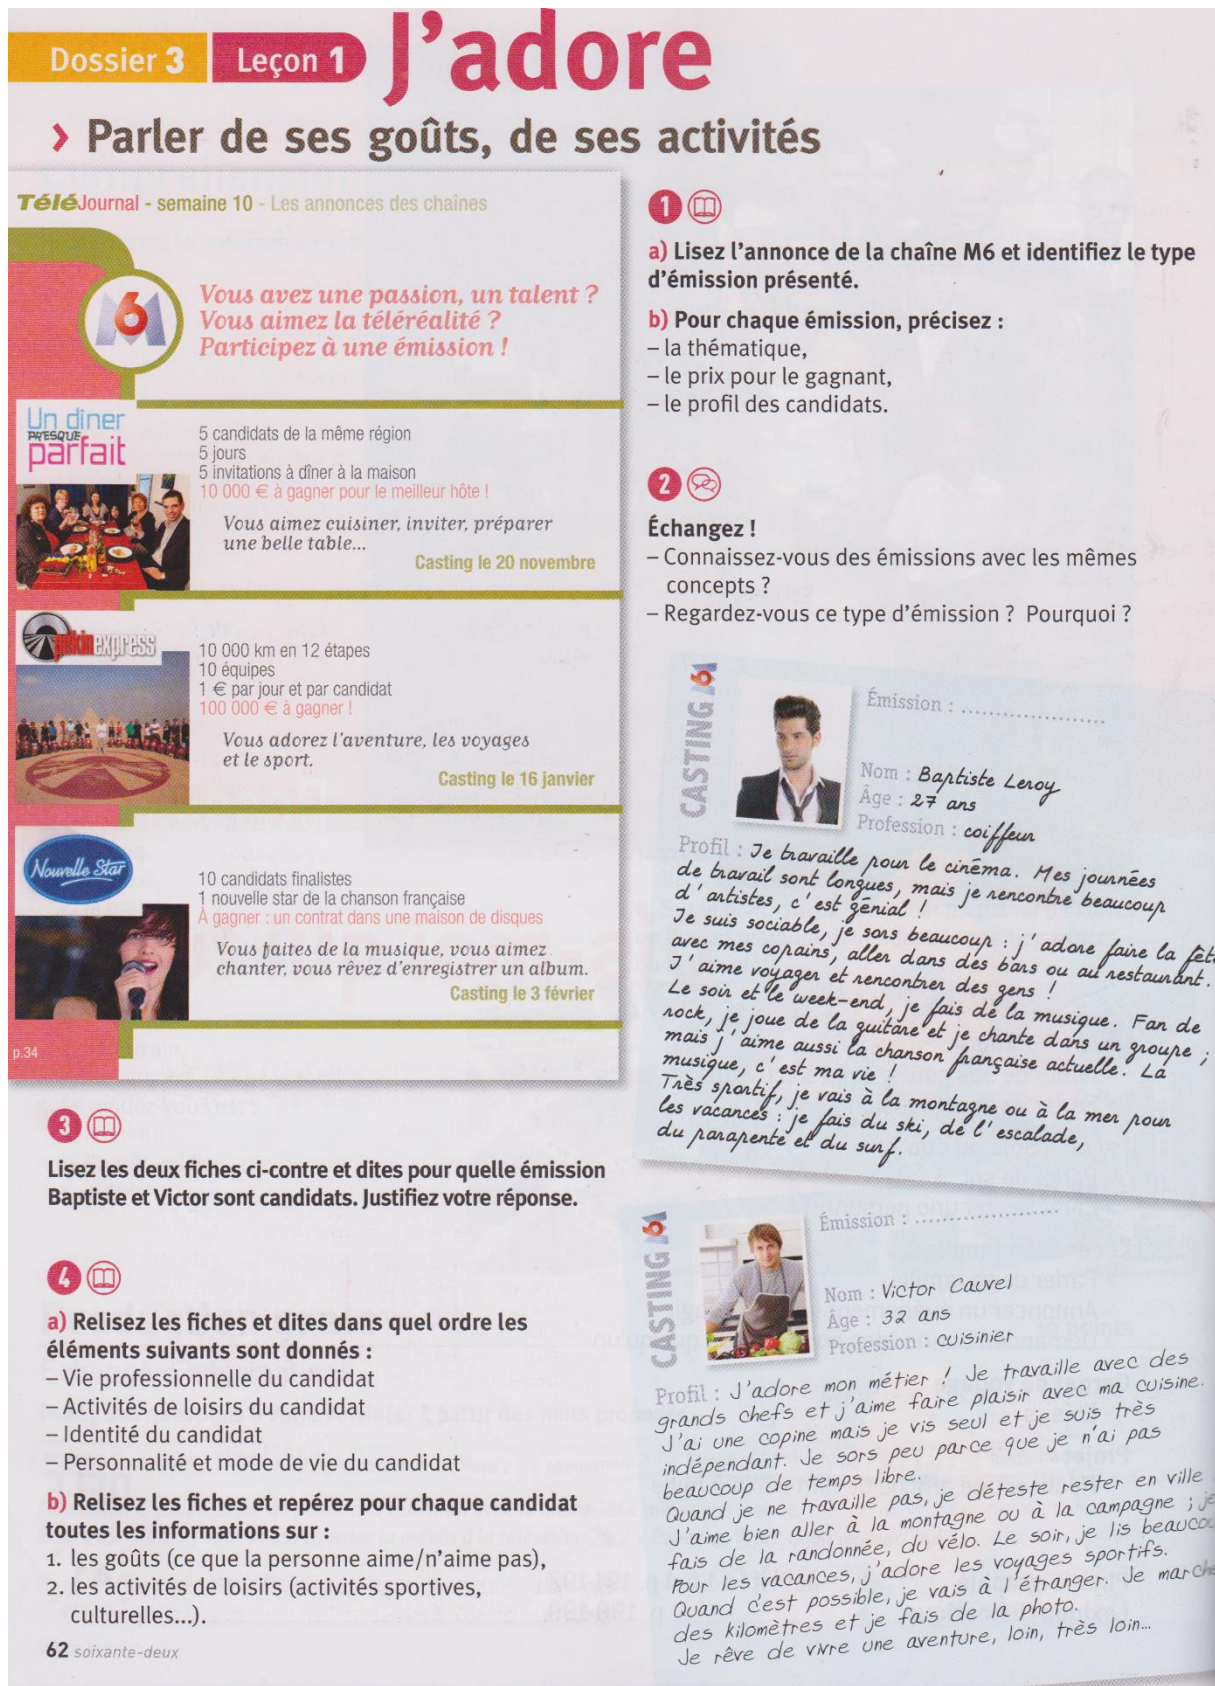 Dossier 3 Leçon 1 J'adore
› Parler de ses goûts, de ses activités
TéléJournal - semaine 10 - Les annonces des chaînes
M6
Vous avez une passion, un talent ?
Vous aimez la téléréalité ?
Participez à une émission !
Un dîner
PRESQUE
parfait
5 candidats de la même région
5 jours
5 invitations à dîner à la maison
10 000 € à gagner pour le meilleur hôte !
Vous aimez cuisiner, inviter, préparer
une belle table...
Casting le 20 novembre
pekinexpress
10 000 km en 12 étapes
10 équipes
1 € par jour et par candidat
100 000 € à gagner !
Vous adorez l'aventure, les voyages
et le sport.
Casting le 16 janvier
Nouvelle Star
10 candidats finalistes
1 nouvelle star de la chanson française
À gagner : un contrat dans une maison de disques
Vous faites de la musique, vous aimez
chanter, vous rêvez d'enregistrer un album.
Casting le 3 février
p.34
1
a) Lisez l'annonce de la chaîne M6 et identifiez le type
d'émission présenté.
b) Pour chaque émission, précisez :
– la thématique,
– le prix pour le gagnant,
– le profil des candidats.
2
Échangez !
– Connaissez-vous des émissions avec les mêmes
concepts ?
– Regardez-vous ce type d'émission ? Pourquoi ?
CASTING M6
Émission : .....................
Nom : Baptiste Leroy
Âge : 27 ans
Profession : coiffeur
Profil : Je travaille pour le cinéma. Mes journées
de travail sont longues, mais je rencontre beaucoup
d'artistes, c'est génial !
Je suis sociable, je sors beaucoup : j'adore faire la fête
avec mes copains, aller dans des bars ou au restaurant.
J'aime voyager et rencontrer des gens !
Le soir et le week-end, je fais de la musique. Fan de
rock, je joue de la guitare et je chante dans un groupe ;
mais j'aime aussi la chanson française actuelle. La
musique, c'est ma vie !
Très sportif, je vais à la montagne ou à la mer pour
les vacances : je fais du ski, de l'escalade,
du parapente et du surf.
3
Lisez les deux fiches ci-contre et dites pour quelle émission
Baptiste et Victor sont candidats. Justifiez votre réponse.
4
a) Relisez les fiches et dites dans quel ordre les
éléments suivants sont donnés :
– Vie professionnelle du candidat
– Activités de loisirs du candidat
– Identité du candidat
– Personnalité et mode de vie du candidat
b) Relisez les fiches et repérez pour chaque candidat
toutes les informations sur :
1. les goûts (ce que la personne aime/n'aime pas),
2. les activités de loisirs (activités sportives,
culturelles...).
CASTING M6
Émission : .....................
Nom : Victor Cauvel
Âge : 32 ans
Profession : cuisinier
Profil : J'adore mon métier ! Je travaille avec des
grands chefs et j'aime faire plaisir avec ma cuisine.
J'ai une copine mais je vis seul et je suis très
indépendant. Je sors peu parce que je n'ai pas
beaucoup de temps libre.
Quand je ne travaille pas, je déteste rester en ville
J'aime bien aller à la montagne ou à la campagne ; je
fais de la randonnée, du vélo. Le soir, je lis beaucou
Pour les vacances, j'adore les voyages sportifs.
Quand c'est possible, je vais à l'étranger. Je marche
des kilomètres et je fais de la photo.
Je rêve de vivre une aventure, loin, très loin...
62 soixante-deux